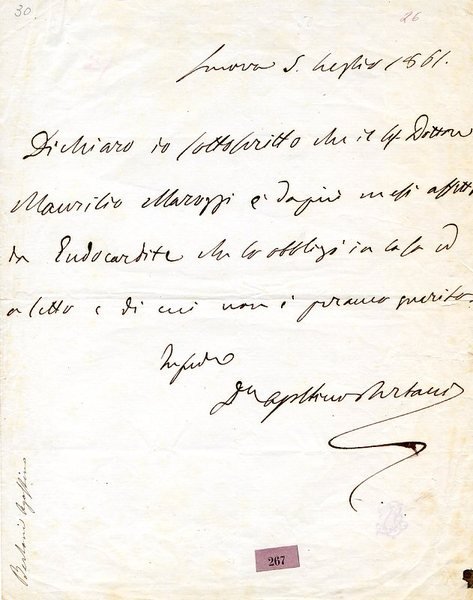 30
26
Genova 5. Luglio 1861.
Dichiaro io sottoscritto che il Sig. Dottore
Maurilio Marozzi è da più mesi affetto
da Endocardite che lo obbligò in casa ed
a letto e di cui non è peranco guarito.
In fede
Dr. Agostino Bertani
Bertani Agostino
267